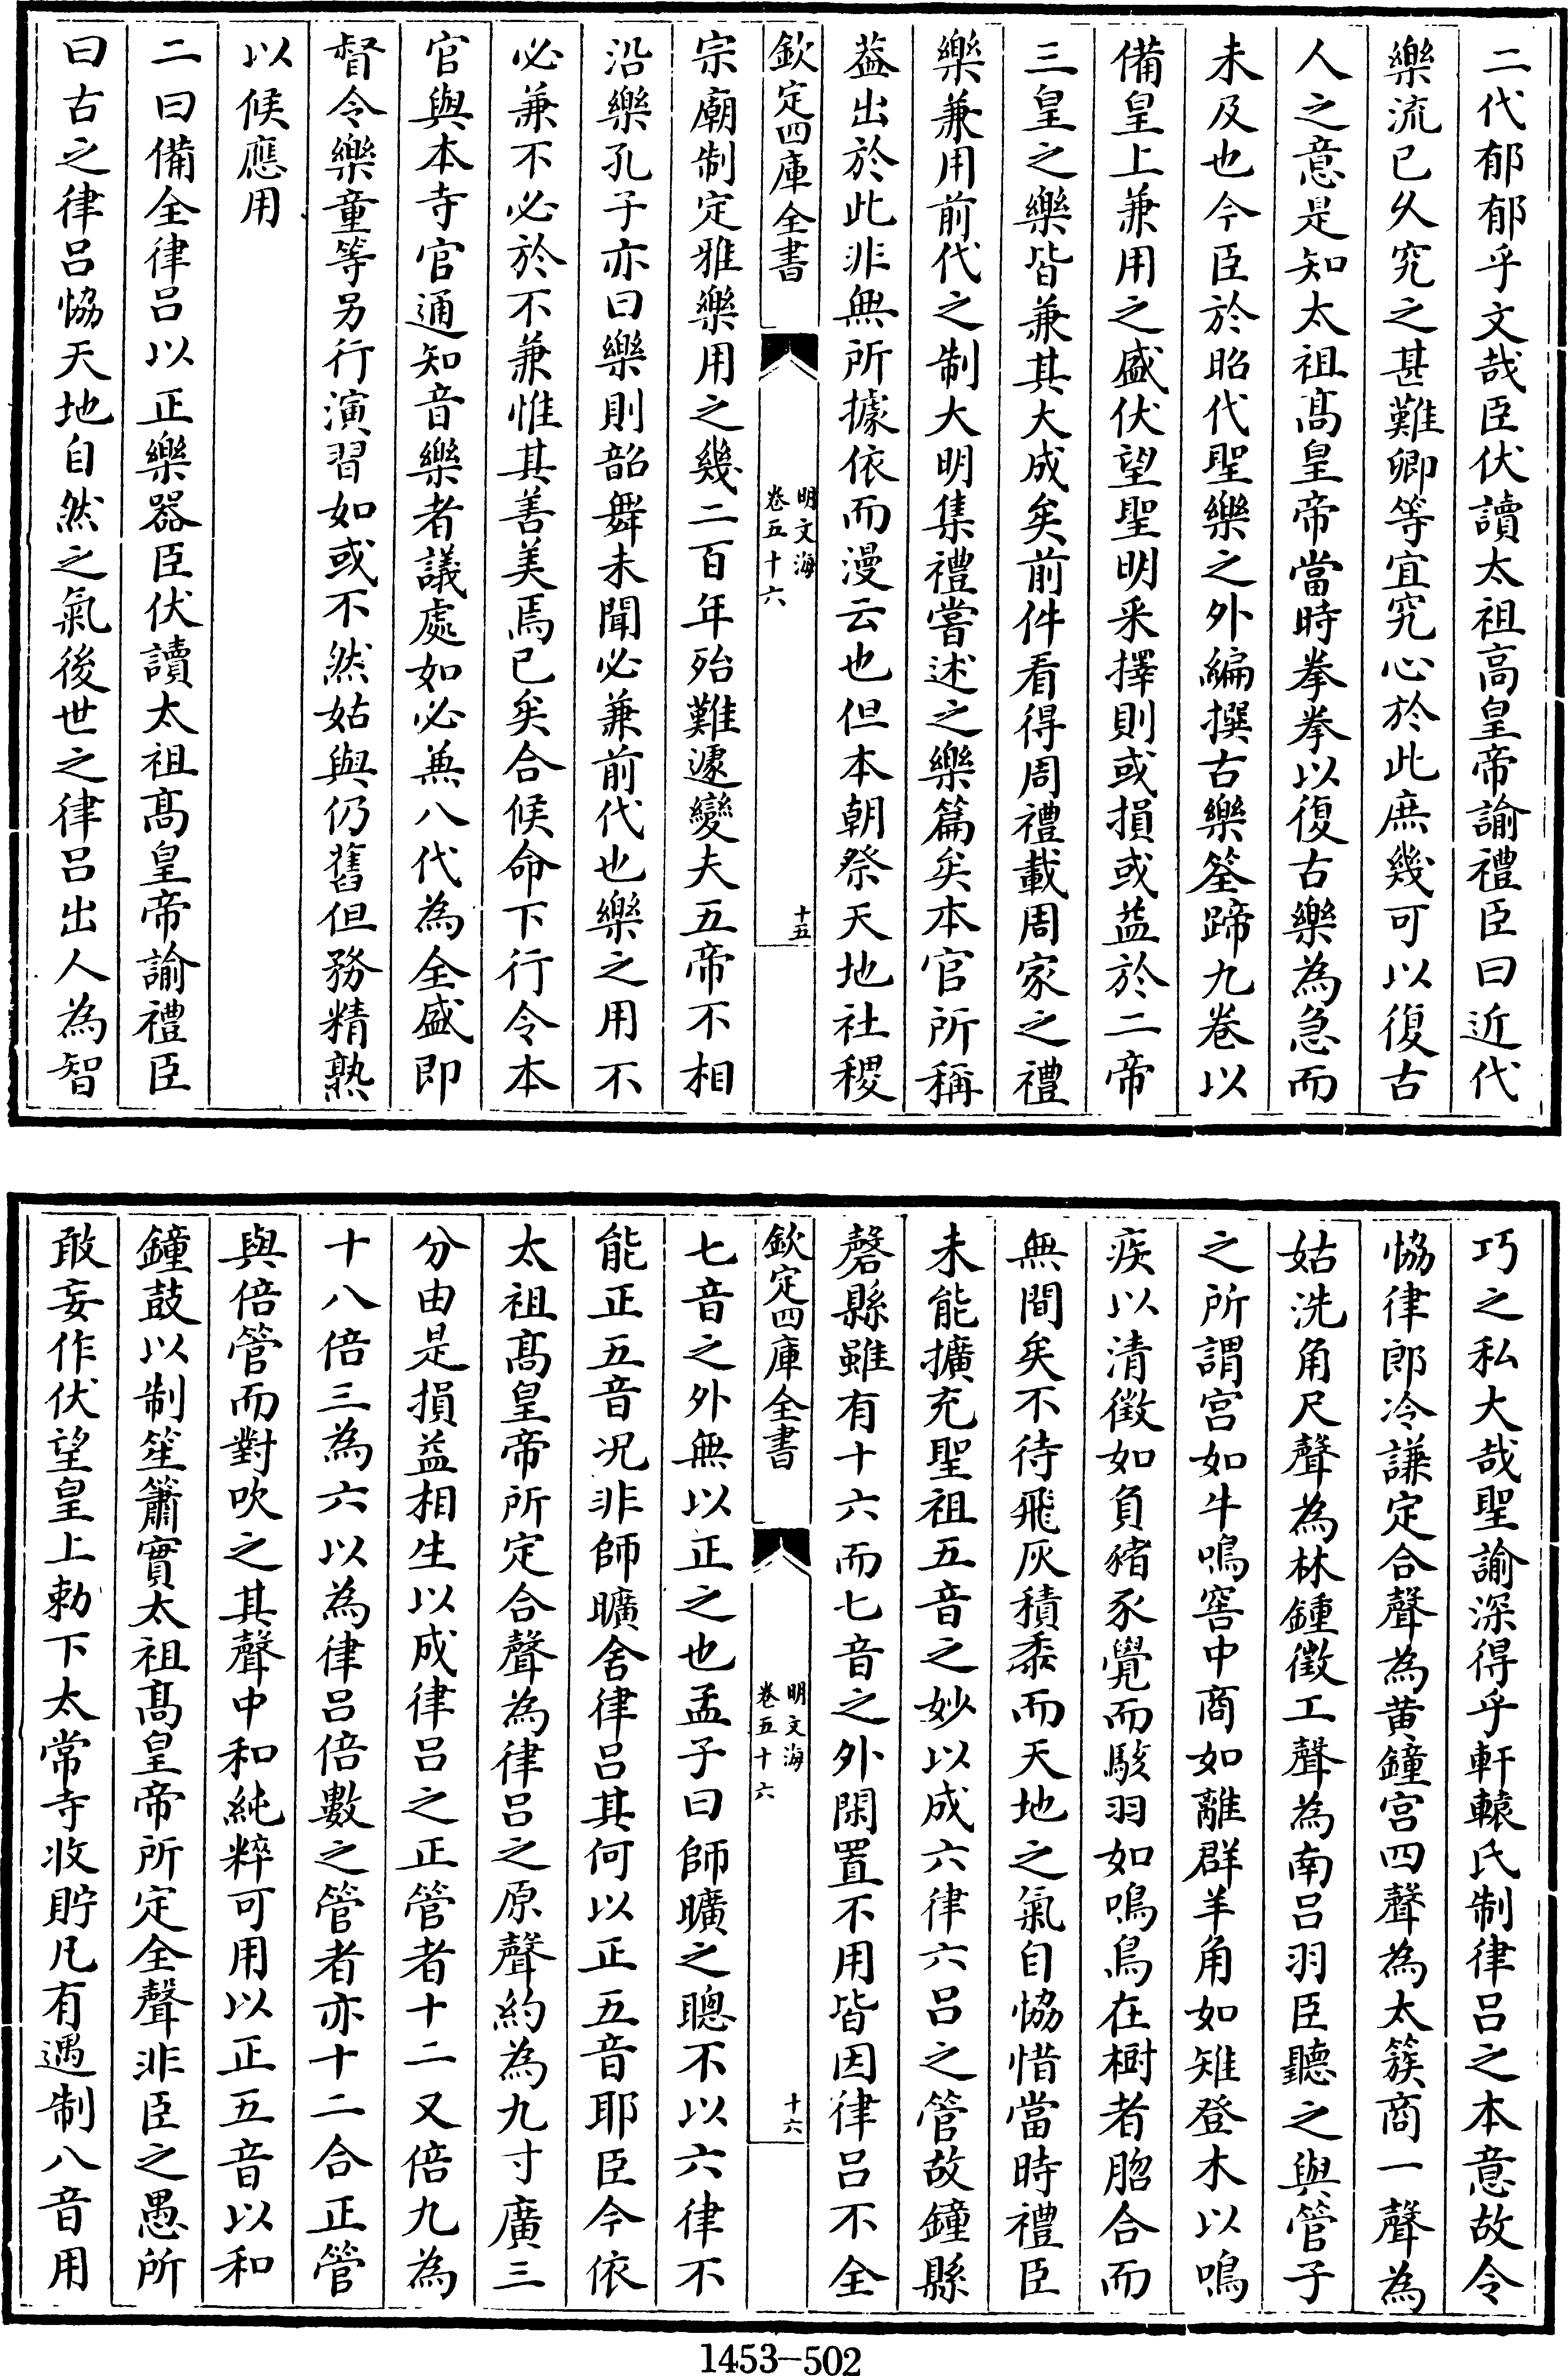 二代郁郁乎文哉臣伏讀太祖高皇帝諭禮臣曰近代
樂流已乆究之甚難卿等宜究心於此庶幾可以復古
人之意是知太祖髙皇帝當時拳拳以復古樂為急而
未及也今臣於昭代聖樂之外編撰古樂筌蹄九卷以
備皇上兼用之盛伏望聖明采擇則或損或益於二帝
三皇之樂皆兼其大成矣前件看得周禮載周家之禮
樂兼用前代之制大明集禮嘗述之樂篇矣本官所稱
葢出於此非無所據依而漫云也但本朝祭天地社稷
欽定四庫全書
明文海
卷五十六
十五
宗廟制定雅樂用之幾二百年殆難遽變夫五帝不相
沿樂孔子亦曰樂則韶舞未聞必兼前代也樂之用不
必兼不必於不兼惟其善美焉已矣合候命下行令本
官與本寺官通知音樂者議處如必兼八代為全盛即
督令樂童等另行演習如或不然姑與仍舊但務精熟
以候應用
二曰備全律吕以正樂器臣伏讀太祖髙皇帝諭禮臣
曰古之律吕恊天地自然之氣後世之律吕出人為智
巧之私大哉聖諭深得乎軒轅氏制律吕之本意故令
恊律郎冷謙定合聲為黄鐘宫四聲為太簇商一聲為
姑洗角尺聲為林鍾徵工聲為南吕羽臣聽之與管子
之所謂宫如牛鳴窖中商如離群羊角如雉登木以鳴
疾以清徵如負豬豕覺而駭羽如鳴鳥在樹者脗合而
無間矣不待飛灰積黍而天地之氣自恊惜當時禮臣
未能擴充聖祖五音之妙以成六律六吕之管故鐘縣
磬縣雖有十六而七音之外閑置不用皆因律吕不全
欽定四庫全書
明文海
卷五十六
十六
七音之外無以正之也孟子曰師曠之聰不以六律不
能正五音况非師曠舍律吕其何以正五音耶臣今依
太祖髙皇帝所定合聲為律吕之原聲約為九寸廣三
分由是損益相生以成律吕之正管者十二又倍九為
十八倍三為六以為律吕倍數之管者亦十二合正管
與倍管而對吹之其聲中和純粹可用以正五音以和
鐘鼓以制笙簫實太祖髙皇帝所定全聲非臣之愚所
敢妄作伏望皇上勅下太常寺收貯凡有遇制八音用
1453-502